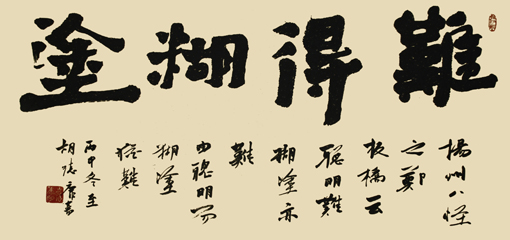 難得糊塗
揚州八怪
之鄭
板橋云
聰明難
糊塗亦
難
由聰明而
糊塗
難
丙申冬至
胡